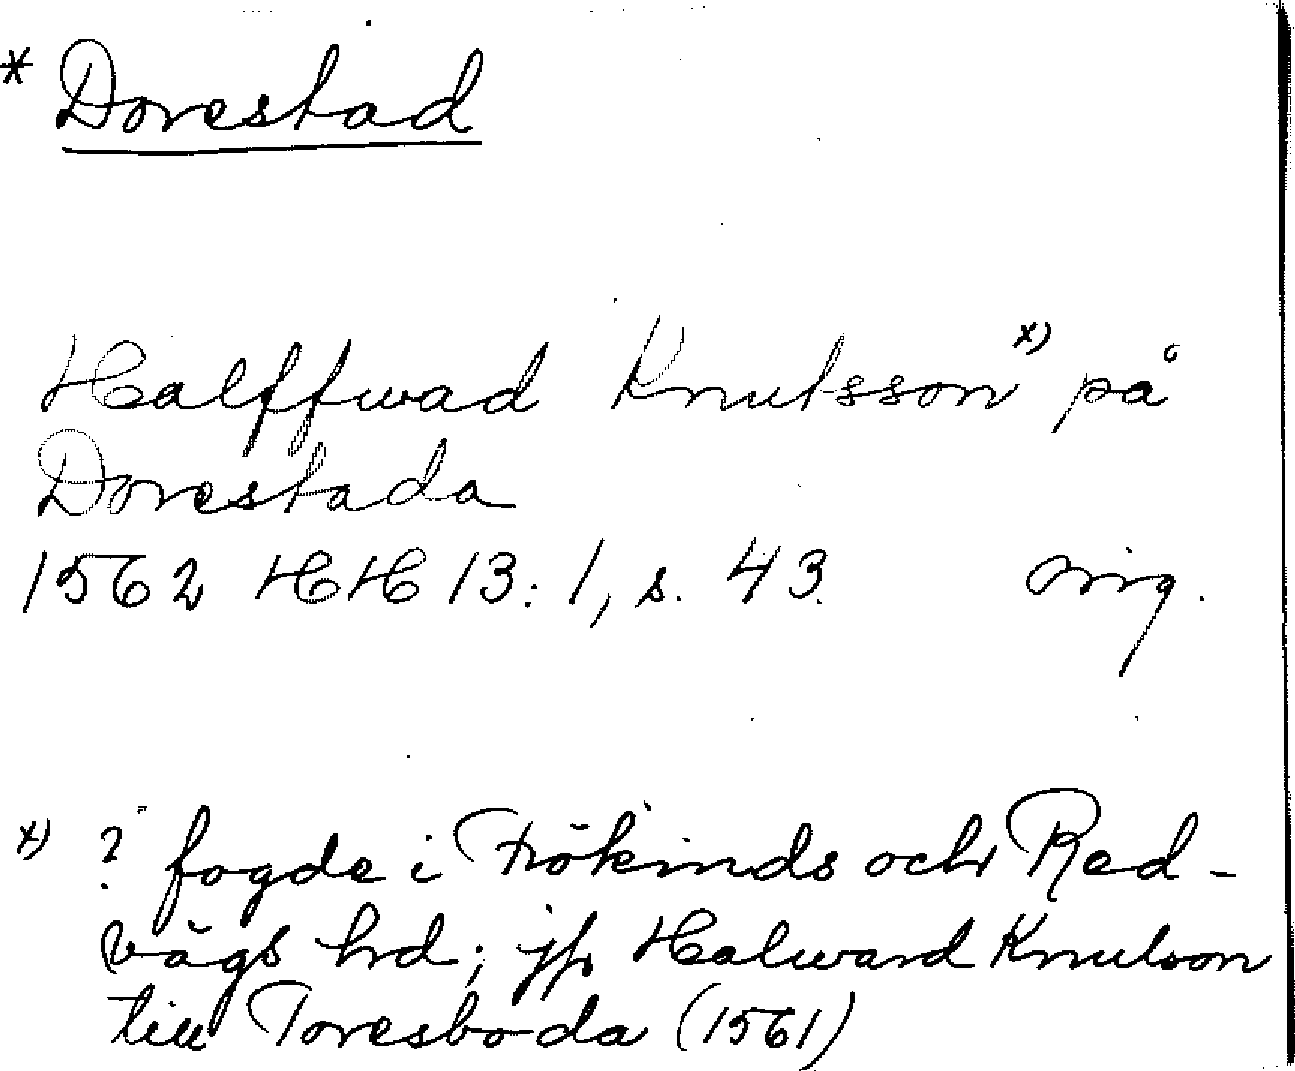 * Dorestad
Halffwad Knutsson x) på
Dorestada
1562 HH 13:1, s. 43. orig.
x) ? fogde i Frökinds och Red-
vägs hrd; jfr Halward Knutson
till Toresboda (1561)